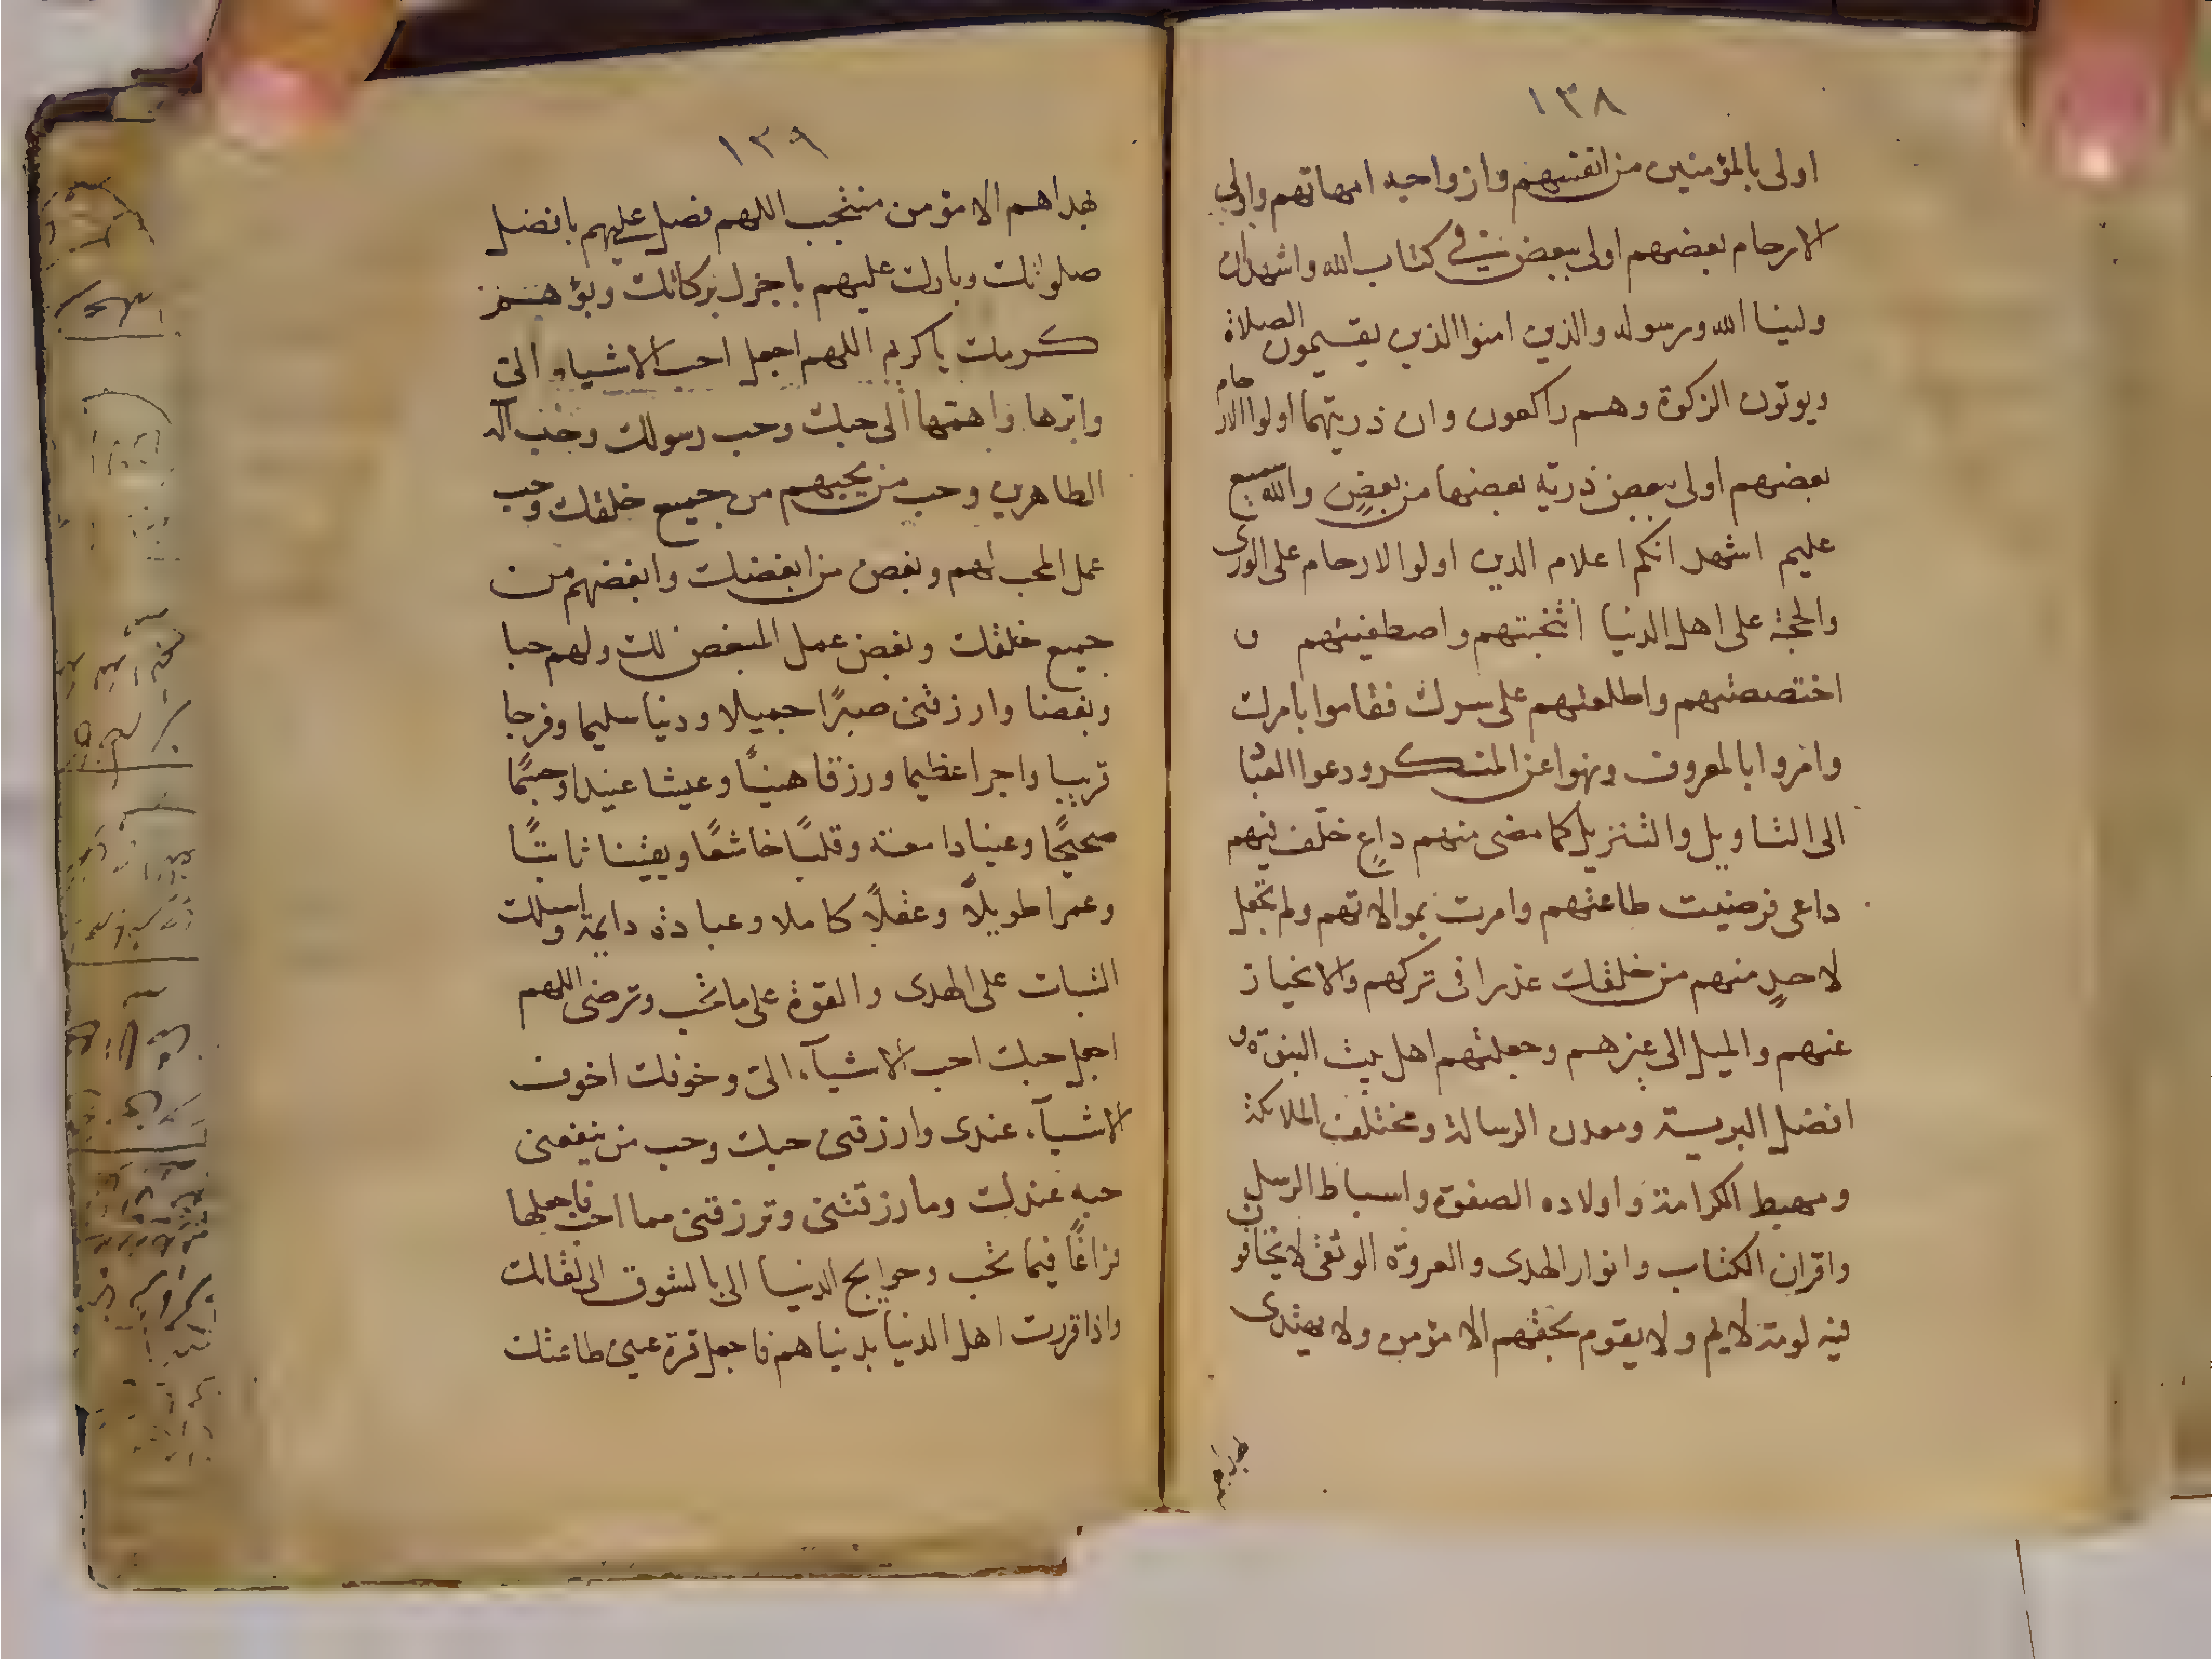 ١٣٨
اولى بالمؤمنين من انفسهم وازواجه امهاتهم واولى
الارحام بعضهم اولى ببعض في كتاب الله واشهد ان
ولينا الله ورسوله والذين امنوا الذين يقيمون الصلاة
ويوتون الزكوة وهم راكعون وان ذريتهما اولوا الارحام
بعضهم اولى ببعض ذرية بعضها من بعضٍ والله سميع
عليم اشهد انكم اعلام الدين اولوا الارحام على الورى
والحجة على اهل الدنيا انتجبتهم واصطفيتهم و
اختصصتهم واطلعتهم على سرك فقاموا بامرك
وامروا بالمعروف ونهوا عن المنكر ودعوا العباد
الى التاويل والتنزيل كما مضى منهم داعٍ خلّف فيهم
داعى فرضيت طاعتهم وامرت بموالاتهم ولم تجعل
لاحدٍ منهم من خلقك عذرا فى تركهم والانحياز
عنهم والميل الى غيرهم وجعلتهم اهل بيت النبوّة و
افضل البرية ومعدن الرسالة ومختلف الملائكة
ومهبط الكرامة واولاده الصفوة واسباط الرسل
واقران الكتاب وانوار الهدى والعروة الوثقى لا يخافون
فيه لومة لايم ولا يقوم بحقهم الا مؤمن ولا يهتدى
١٣٩
بهداهم الا مؤمن منتجب اللهم فصل عليهم بافضل
صلواتك وبارك عليهم باجزل بركاتك وبوّهم من
كرمك ياكريم اللهم اجعل احب الاشياء الىّ
وابرها واهمّها الى حبك وحب رسولك وحب آله
الطاهرين وحب من يحبهم من جميع خلقك وحب
عمل المحب لهم وبغض من ابغضك وابغضهم من
جميع خلقك وبغض عمل المبغض لك ولهم حبا
وبغضا وارزقنى صبرًا جميلا ودينا سليما وفرجا
قريبا واجرا عظيما ورزقا هنيئًا وعيشا رغيدا وجسمًا
صحيحًا وعينا دامعة وقلبًا خاشعًا ويقينا ثابتًا
وعمرا طويلًا وعقلًا كاملا وعبادة دايمة واسئلك
الثبات على الهدى والقوة على ما تحب وترضى اللهم
اجعل حبك احب الاشيآء الىّ وخوفك اخوف
الاشيآء عندى وارزقنى حبك وحب من ينفعنى
حبه عندك وما رزقتنى وترزقنى مما احب فاجعلها
فراغًا فيما تحب وحوايج الدنيا الى بالشوق الى لقائك
واذا قررت اهل الدنيا بدنياهم فاجعل قرة عينى طاعتك